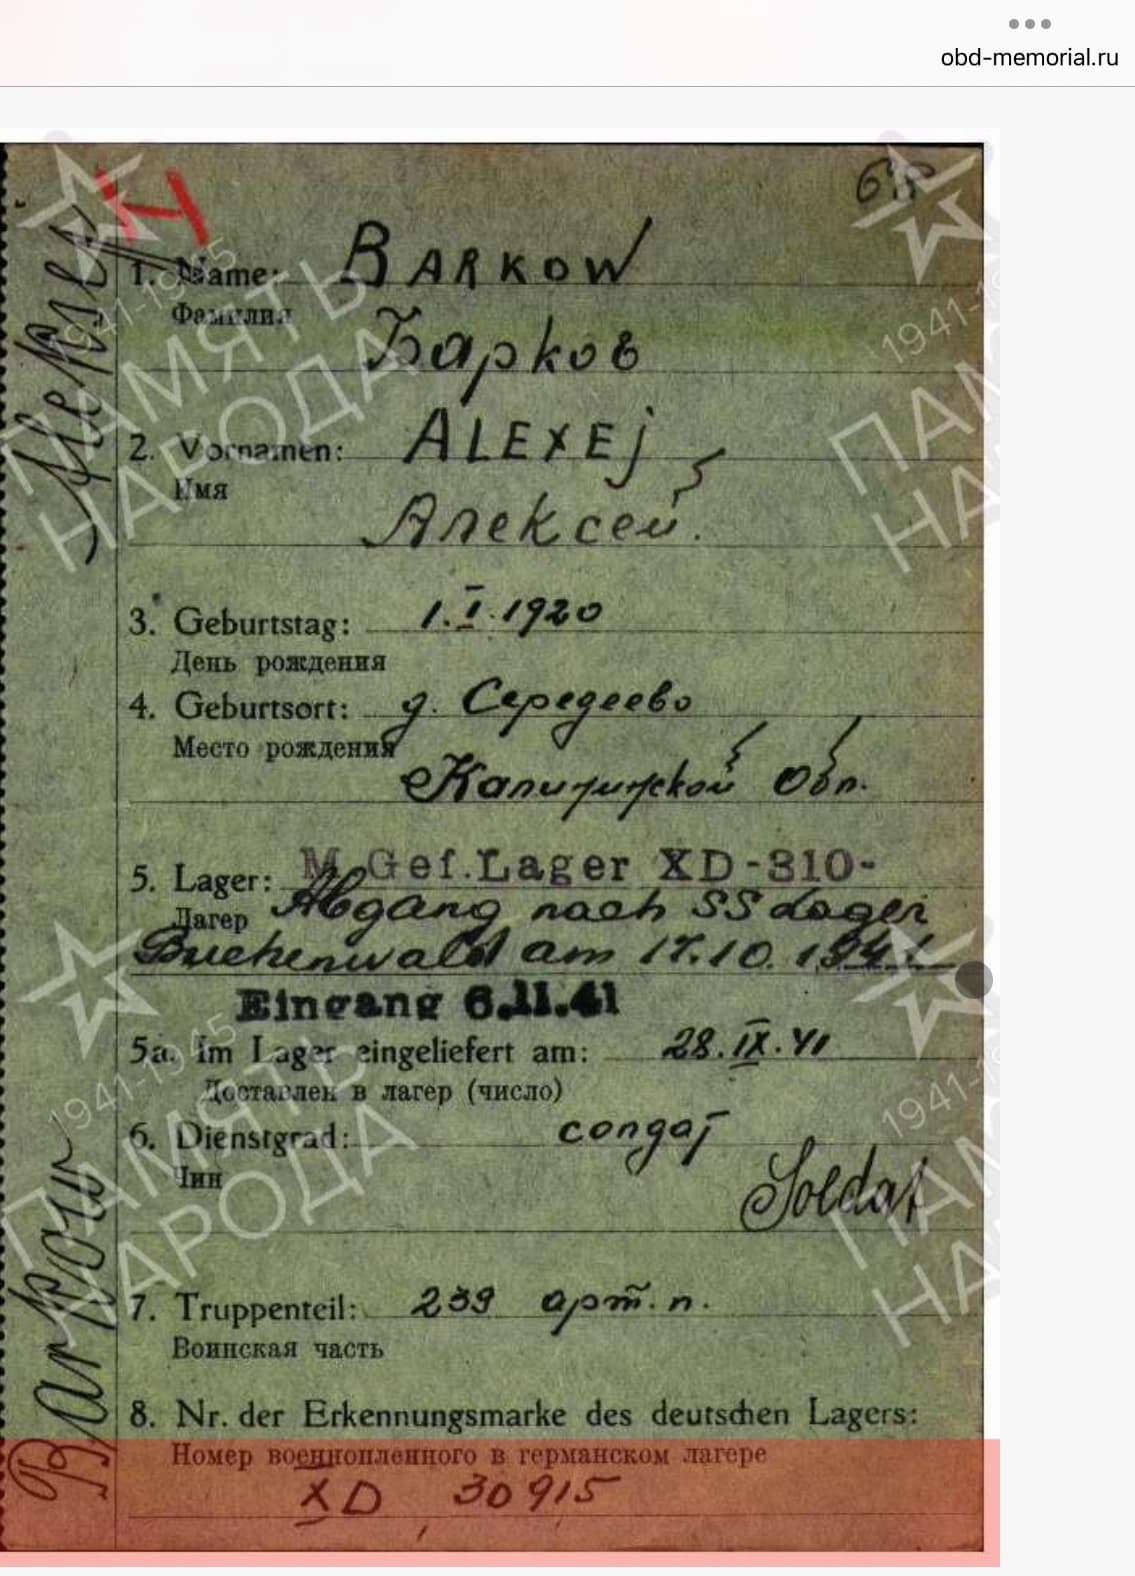 obd-memorial.ru
1. Name: BARKOW
Фамилия
Барков
2. Vornamen: ALEXEJ
Имя
Алексей.
3. Geburtstag: 1.I.1920
День рождения
4. Geburtsort: д. Середеево
Место рождения
Обл.
5. Lager: M.Gef.Lager XD-310-
Лагер Abgang nach SS Lager
Buchenwald am 17.10.1941
Eingang 6.11.41
5a. Im Lager eingeliefert am: 28.IX.41
Доставлен в лагер (число)
6. Dienstgrad: солдат
Чин
Soldat
7. Truppenteil: 239 арт. п.
Воинская часть
8. Nr. der Erkennungsmarke des deutschen Lagers:
Номер военнопленного в германском лагере
XD 30915
Barkow
Aleksej
ПАМЯТЬ
НАРОДА
1941-1945